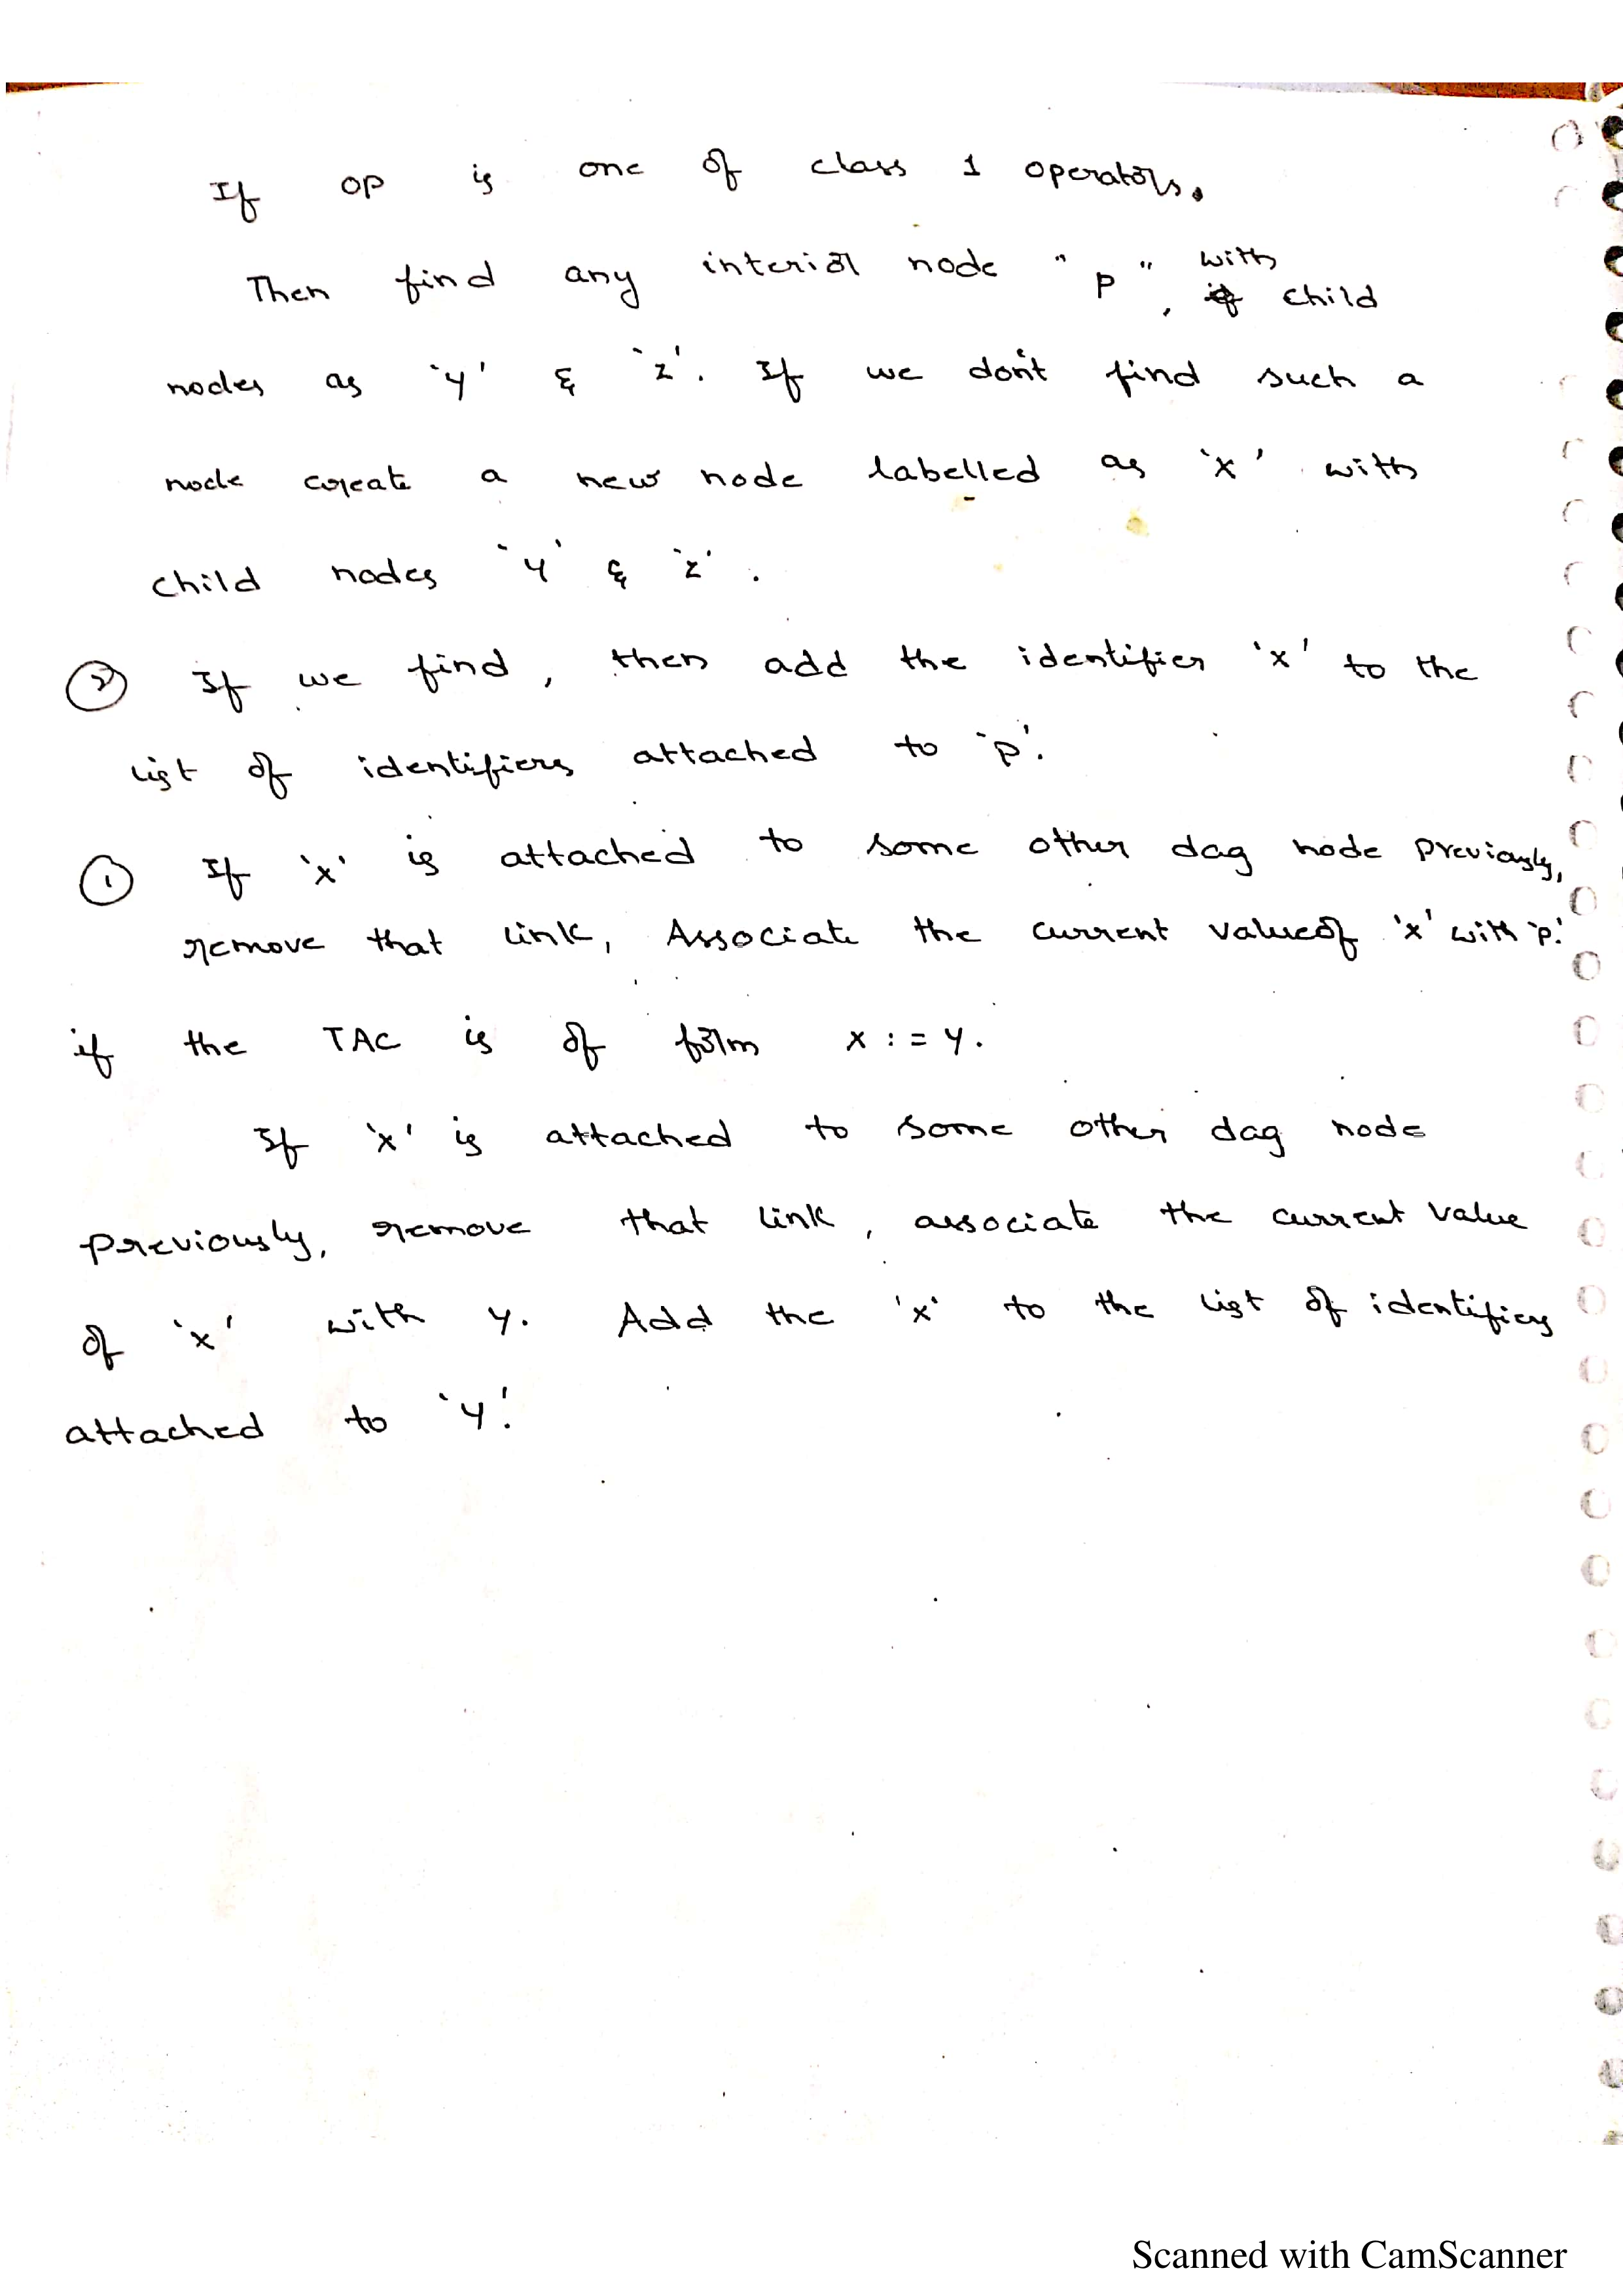 If OP is one of class 1 operators.
Then find any interior node "P", with child
nodes as 'y' & 'z'. If we don't find such a
node create a new node labelled as 'x' with
child nodes 'y' & 'z'.
② If we find, then add the identifier 'x' to the
list of identifiers attached to 'p'.
① If 'x' is attached to some other dag node previously,
remove that link, Associate the current value of 'x' with 'p'.
if the TAC is of form x := y.
If 'x' is attached to some other dag node
previously, remove that link, associate the current value
of 'x' with y. Add the 'x' to the list of identifiers
attached to 'y'.
Scanned with CamScanner